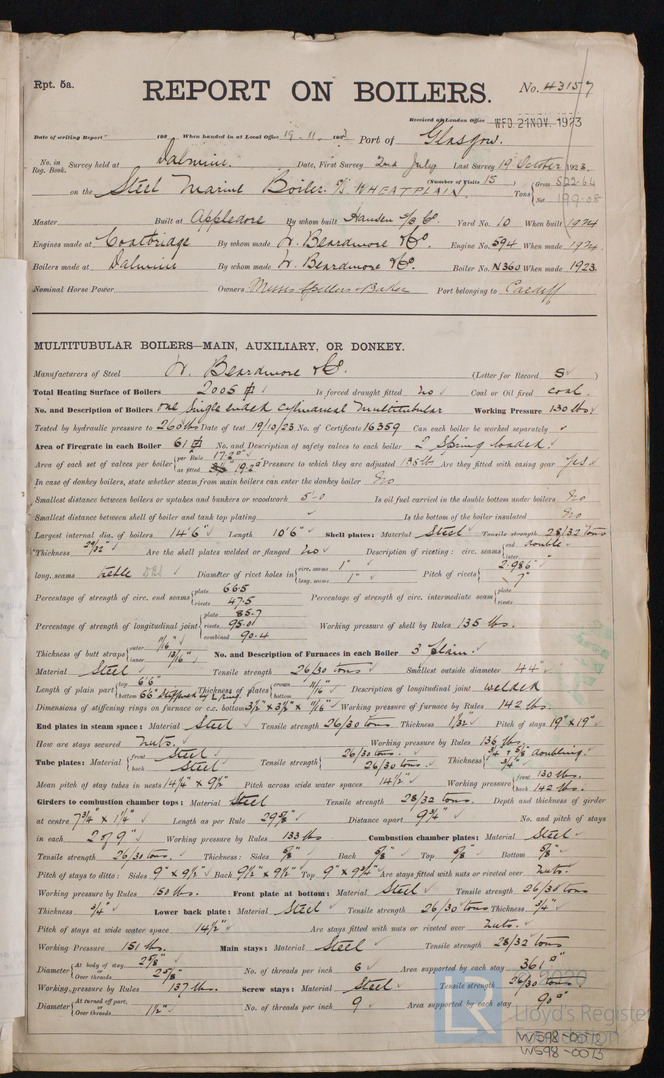 Rpt. 5a.
REPORT ON BOILERS.
No. 43157
Received at London Office WED. 21 NOV. 1923
Date of writing Report 192 When handed in at Local Office 19.11.1923 Port of Glasgow.
No. in Reg. Book. Survey held at Dalmuir. Date, First Survey 2nd July Last Survey 19 October 1923.
(Number of Visits 15)
on the Steel Marine Boiler. S/S WHEATPLAIN. Tons { Gross 522.64
Net 199.08
Master Built at Appledore By whom built Hansen S/B Co. Yard No. 10 When built 1924
Engines made at Coatbridge By whom made W. Beardmore & Co. Engine No. 594 When made 1924
Boilers made at Dalmuir By whom made W. Beardmore & Co. Boiler No. N360 When made 1923
Nominal Horse Power Owners Messrs Spillers & Baker Port belonging to Cardiff
MULTITUBULAR BOILERS—MAIN, AUXILIARY, OR DONKEY.
Manufacturers of Steel W. Beardmore & Co. (Letter for Record S)
Total Heating Surface of Boilers 2005 Is forced draught fitted no Coal or Oil fired coal.
No. and Description of Boilers One Single ended cylindrical multitubular Working Pressure 130 lbs
Tested by hydraulic pressure to 260 lbs Date of test 19/10/23 No. of Certificate 16359 Can each boiler be worked separately
Area of Firegrate in each Boiler 61 No. and Description of safety valves to each boiler 2 Spring loaded.
Area of each set of valves per boiler { per Rule 17.2 as fitted 19.2 Pressure to which they are adjusted 135 lb Are they fitted with easing gear Yes
In case of donkey boilers, state whether steam from main boilers can enter the donkey boiler No
Smallest distance between boilers or uptakes and bunkers or woodwork Is oil fuel carried in the double bottom under boilers No
Smallest distance between shell of boiler and tank top plating Is the bottom of the boiler insulated No
Largest internal dia. of boilers 14'6" Length 10'6" Shell plates: Material Steel Tensile strength 28/32 tons
Thickness 29/32" Are the shell plates welded or flanged no Description of riveting: circ. seams { end double
inter.
long. seams treble Diameter of rivet holes in { circ. seams 1" long. seams 1" Pitch of rivets { 2.986" 7"
Percentage of strength of circ. end seams { plate 66.5 rivets 47.5 Percentage of strength of circ. intermediate seam { plate rivets
Percentage of strength of longitudinal joint { plate 85.7 rivets 95.0 combined 90.4 Working pressure of shell by Rules 135 lbs.
Thickness of butt straps { outer 11/16" inner 13/16" No. and Description of Furnaces in each Boiler 3 Plain.
Material Steel Tensile strength 26/30 tons Smallest outside diameter 44"
Length of plain part { top 6'6" bottom 66" Thickness of plates { crown 11/16" bottom Description of longitudinal joint welded
Dimensions of stiffening rings on furnace or c.c. bottom 3½" x 3½" x 11/16" Working pressure of furnace by Rules 142 lbs.
End plates in steam space: Material Steel Tensile strength 26/30 tons Thickness 1 1/32" Pitch of stays 19" x 19"
How are stays secured nuts. Working pressure by Rules 136 lbs.
Tube plates: Material { front Steel back Steel Tensile strength { 26/30 tons. 26/30 tons. Thickness { 3/4" + 5/8" doubling. 3/4"
Mean pitch of stay tubes in nests 14¼" x 9½" Pitch across wide water spaces 14½" Working pressure { front 130 lbs. back 142 lbs.
Girders to combustion chamber tops: Material Steel Tensile strength 28/32 tons. Depth and thickness of girder
at centre 7¾" x 1¼" Length as per Rule 29 5/8" Distance apart 9¾" No. and pitch of stays
in each 2 of 9" Working pressure by Rules 133 lbs Combustion chamber plates: Material Steel
Tensile strength 26/30 tons. Thickness: Sides 5/8" Back 5/8" Top 5/8" Bottom 5/8"
Pitch of stays to ditto: Sides 9" x 9½" Back 9½" x 9½" Top 9" x 9¾" Are stays fitted with nuts or riveted over nuts.
Working pressure by Rules 150 lbs. Front plate at bottom: Material Steel Tensile strength 26/30 tons
Thickness 3/4" Lower back plate: Material Steel Tensile strength 26/30 tons Thickness 3/4"
Pitch of stays at wide water space 14½" Are stays fitted with nuts or riveted over nuts.
Working Pressure 151 lbs. Main stays: Material Steel Tensile strength 28/32 tons
Diameter { At body of stay, 2 5/8" or Over threads 2 5/8" No. of threads per inch 6 Area supported by each stay 361"
Working pressure by Rules 137 lbs. Screw stays: Material Steel Tensile strength 26/30 tons
Diameter { At turned off part, or Over threads 1½" No. of threads per inch 9 Area supported by each stay 90"
© 2020
LR
Lloyd's Register
Foundation
W598-0072
W598-0073